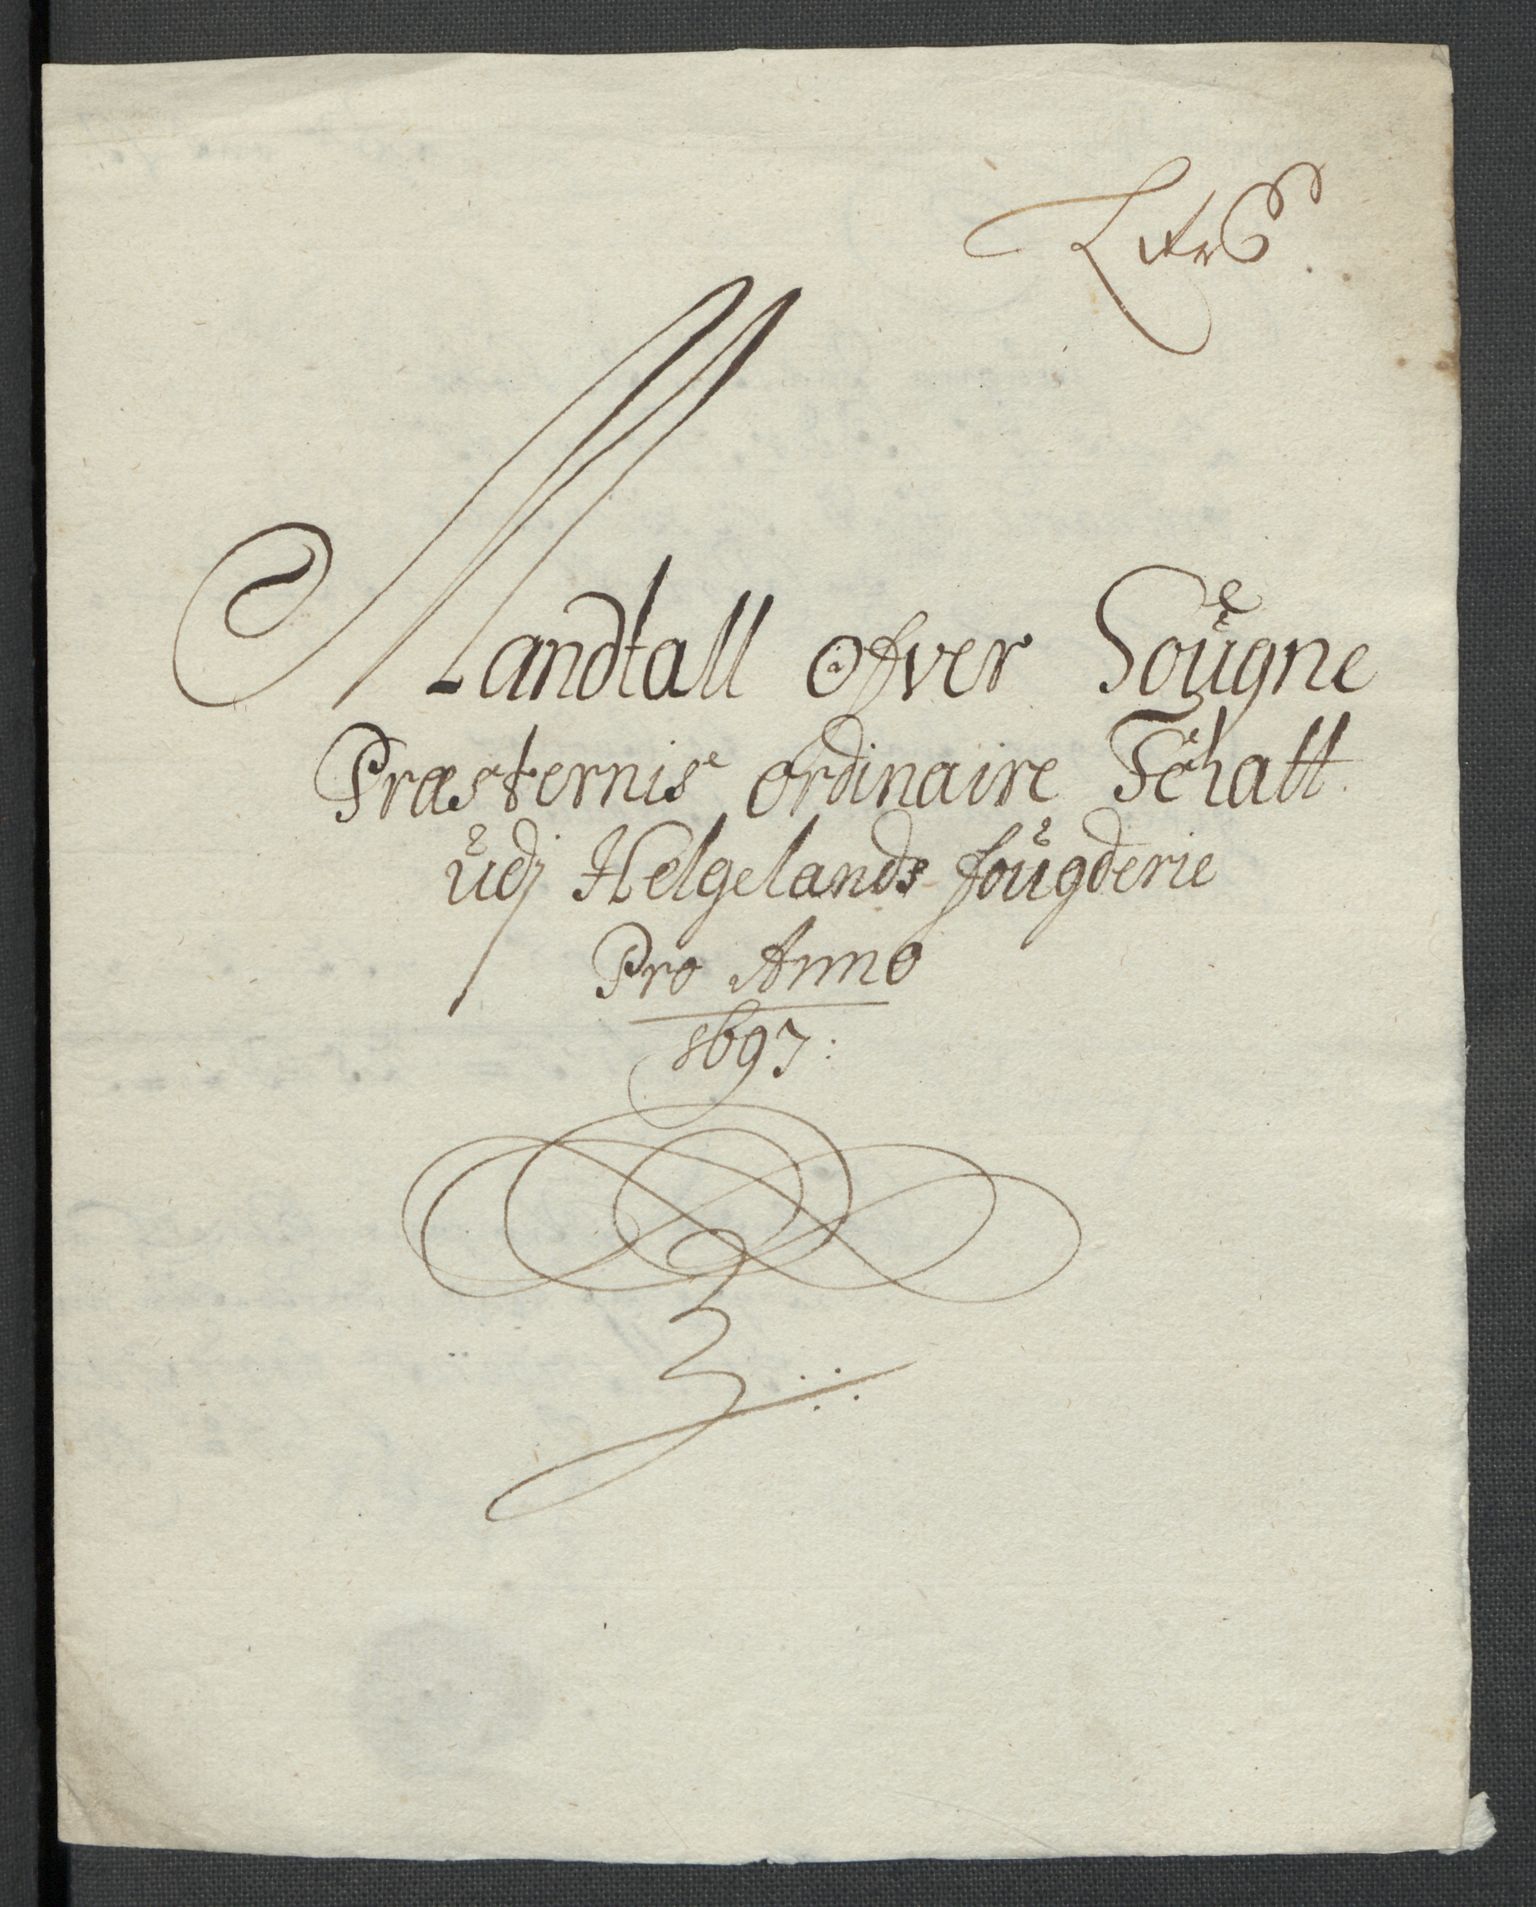 Litr G.
Mandtall ofver Sougne
Præsternis ordinaire Schatt
udj Helgelands fougderie
Pro Anno
1697: